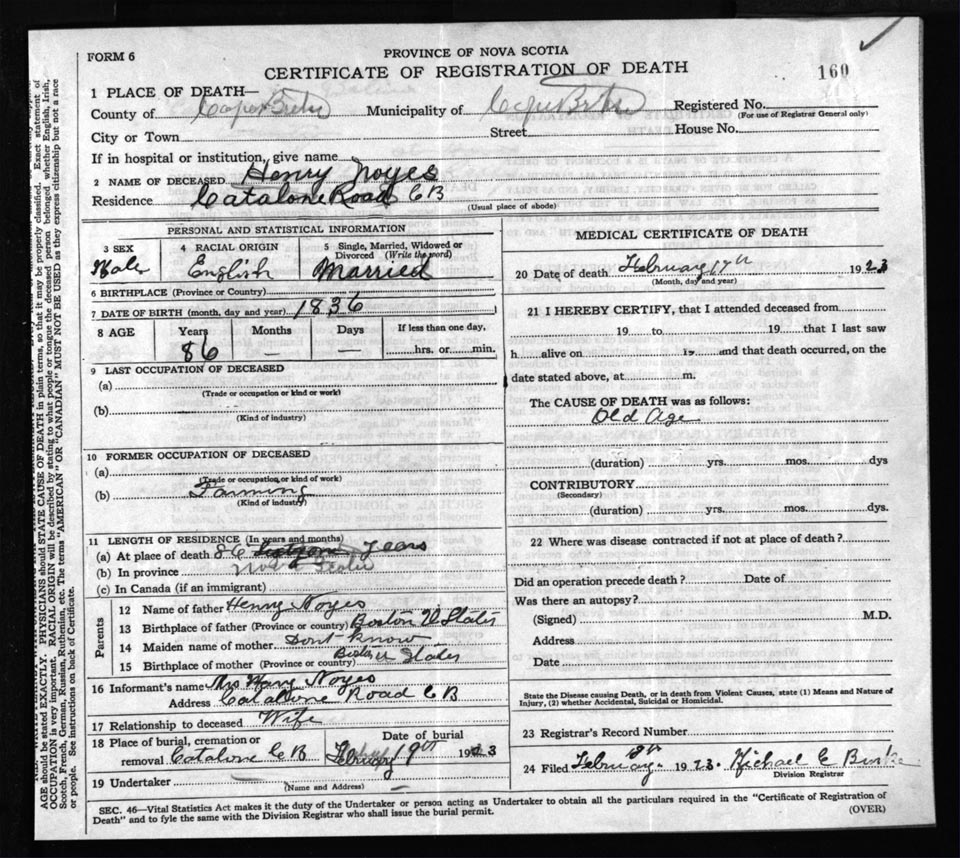 FORM 6
PROVINCE OF NOVA SCOTIA
CERTIFICATE OF REGISTRATION OF DEATH
160
1 PLACE OF DEATH—
County of Cape Breton Municipality of Cape Breton Registered No.
(For use of Registrar General only)
City or Town Street House No.
If in hospital or institution, give name
2 NAME OF DECEASED Henry Noyes
Residence Catalone Road CB
(Usual place of abode)
PERSONAL AND STATISTICAL INFORMATION
3 SEX 4 RACIAL ORIGIN 5 Single, Married, Widowed or Divorced (Write the word)
Male English Married
6 BIRTHPLACE (Province or Country)
7 DATE OF BIRTH (month, day and year) 1836
8 AGE Years Months Days If less than one day,
86 — — hrs. or min.
9 LAST OCCUPATION OF DECEASED
(a)
(Trade or occupation or kind or work)
(b)
(Kind of industry)
10 FORMER OCCUPATION OF DECEASED
(a)
(Trade or occupation, or kind of work)
(b) Farming
(Kind of industry)
11 LENGTH OF RESIDENCE (In years and months)
(a) At place of death 86 years
(b) In province Nova Scotia
(c) In Canada (if an immigrant)
Parents
12 Name of father Henry Noyes
13 Birthplace of father (Province or country) Boston U States
14 Maiden name of mother Dont know
15 Birthplace of mother (Province or country) Boston U States
16 Informant's name Mrs Mary Noyes
Address Catalone Road CB
17 Relationship to deceased Wife
18 Place of burial, cremation or removal Catalone CB
Date of burial
February 19th 1923
19 Undertaker
(Name and Address)
MEDICAL CERTIFICATE OF DEATH
20 Date of death February 17th 1923
(Month, day and year)
21 I HEREBY CERTIFY, that I attended deceased from
19 to 19 that I last saw
h alive on 19 and that death occurred, on the
date stated above, at m.
The CAUSE OF DEATH was as follows:
Old Age
(duration) yrs. mos. dys
CONTRIBUTORY
(Secondary)
(duration) yrs. mos. dys.
22 Where was disease contracted if not at place of death?
Did an operation precede death? Date of
Was there an autopsy?
(Signed) M.D.
Address
Date
State the Disease causing Death, or in death from Violent Causes, state (1) Means and Nature of
Injury, (2) whether Accidental, Suicidal or Homicidal.
23 Registrar's Record Number
24 Filed February 1923. Michael E Burke
Division Registrar
SEC. 46—Vital Statistics Act makes it the duty of the Undertaker or person acting as Undertaker to obtain all the particulars required in the "Certificate of Registration of
Death" and to fyle the same with the Division Registrar who shall issue the burial permit. (OVER)
AGE should be stated EXACTLY. PHYSICIANS should STATE CAUSE OF DEATH in plain terms, so that it may be properly classified. Exact statement of
OCCUPATION is very important. RACIAL ORIGIN will be described by stating to what people or tongue the deceased person belonged whether English, Irish,
Scotch, French, German, Russian, Ruthenian, etc. The terms "AMERICAN" or "CANADIAN" MUST NOT BE USED as they express citizenship but not a race
or people. See instructions on back of Certificate.